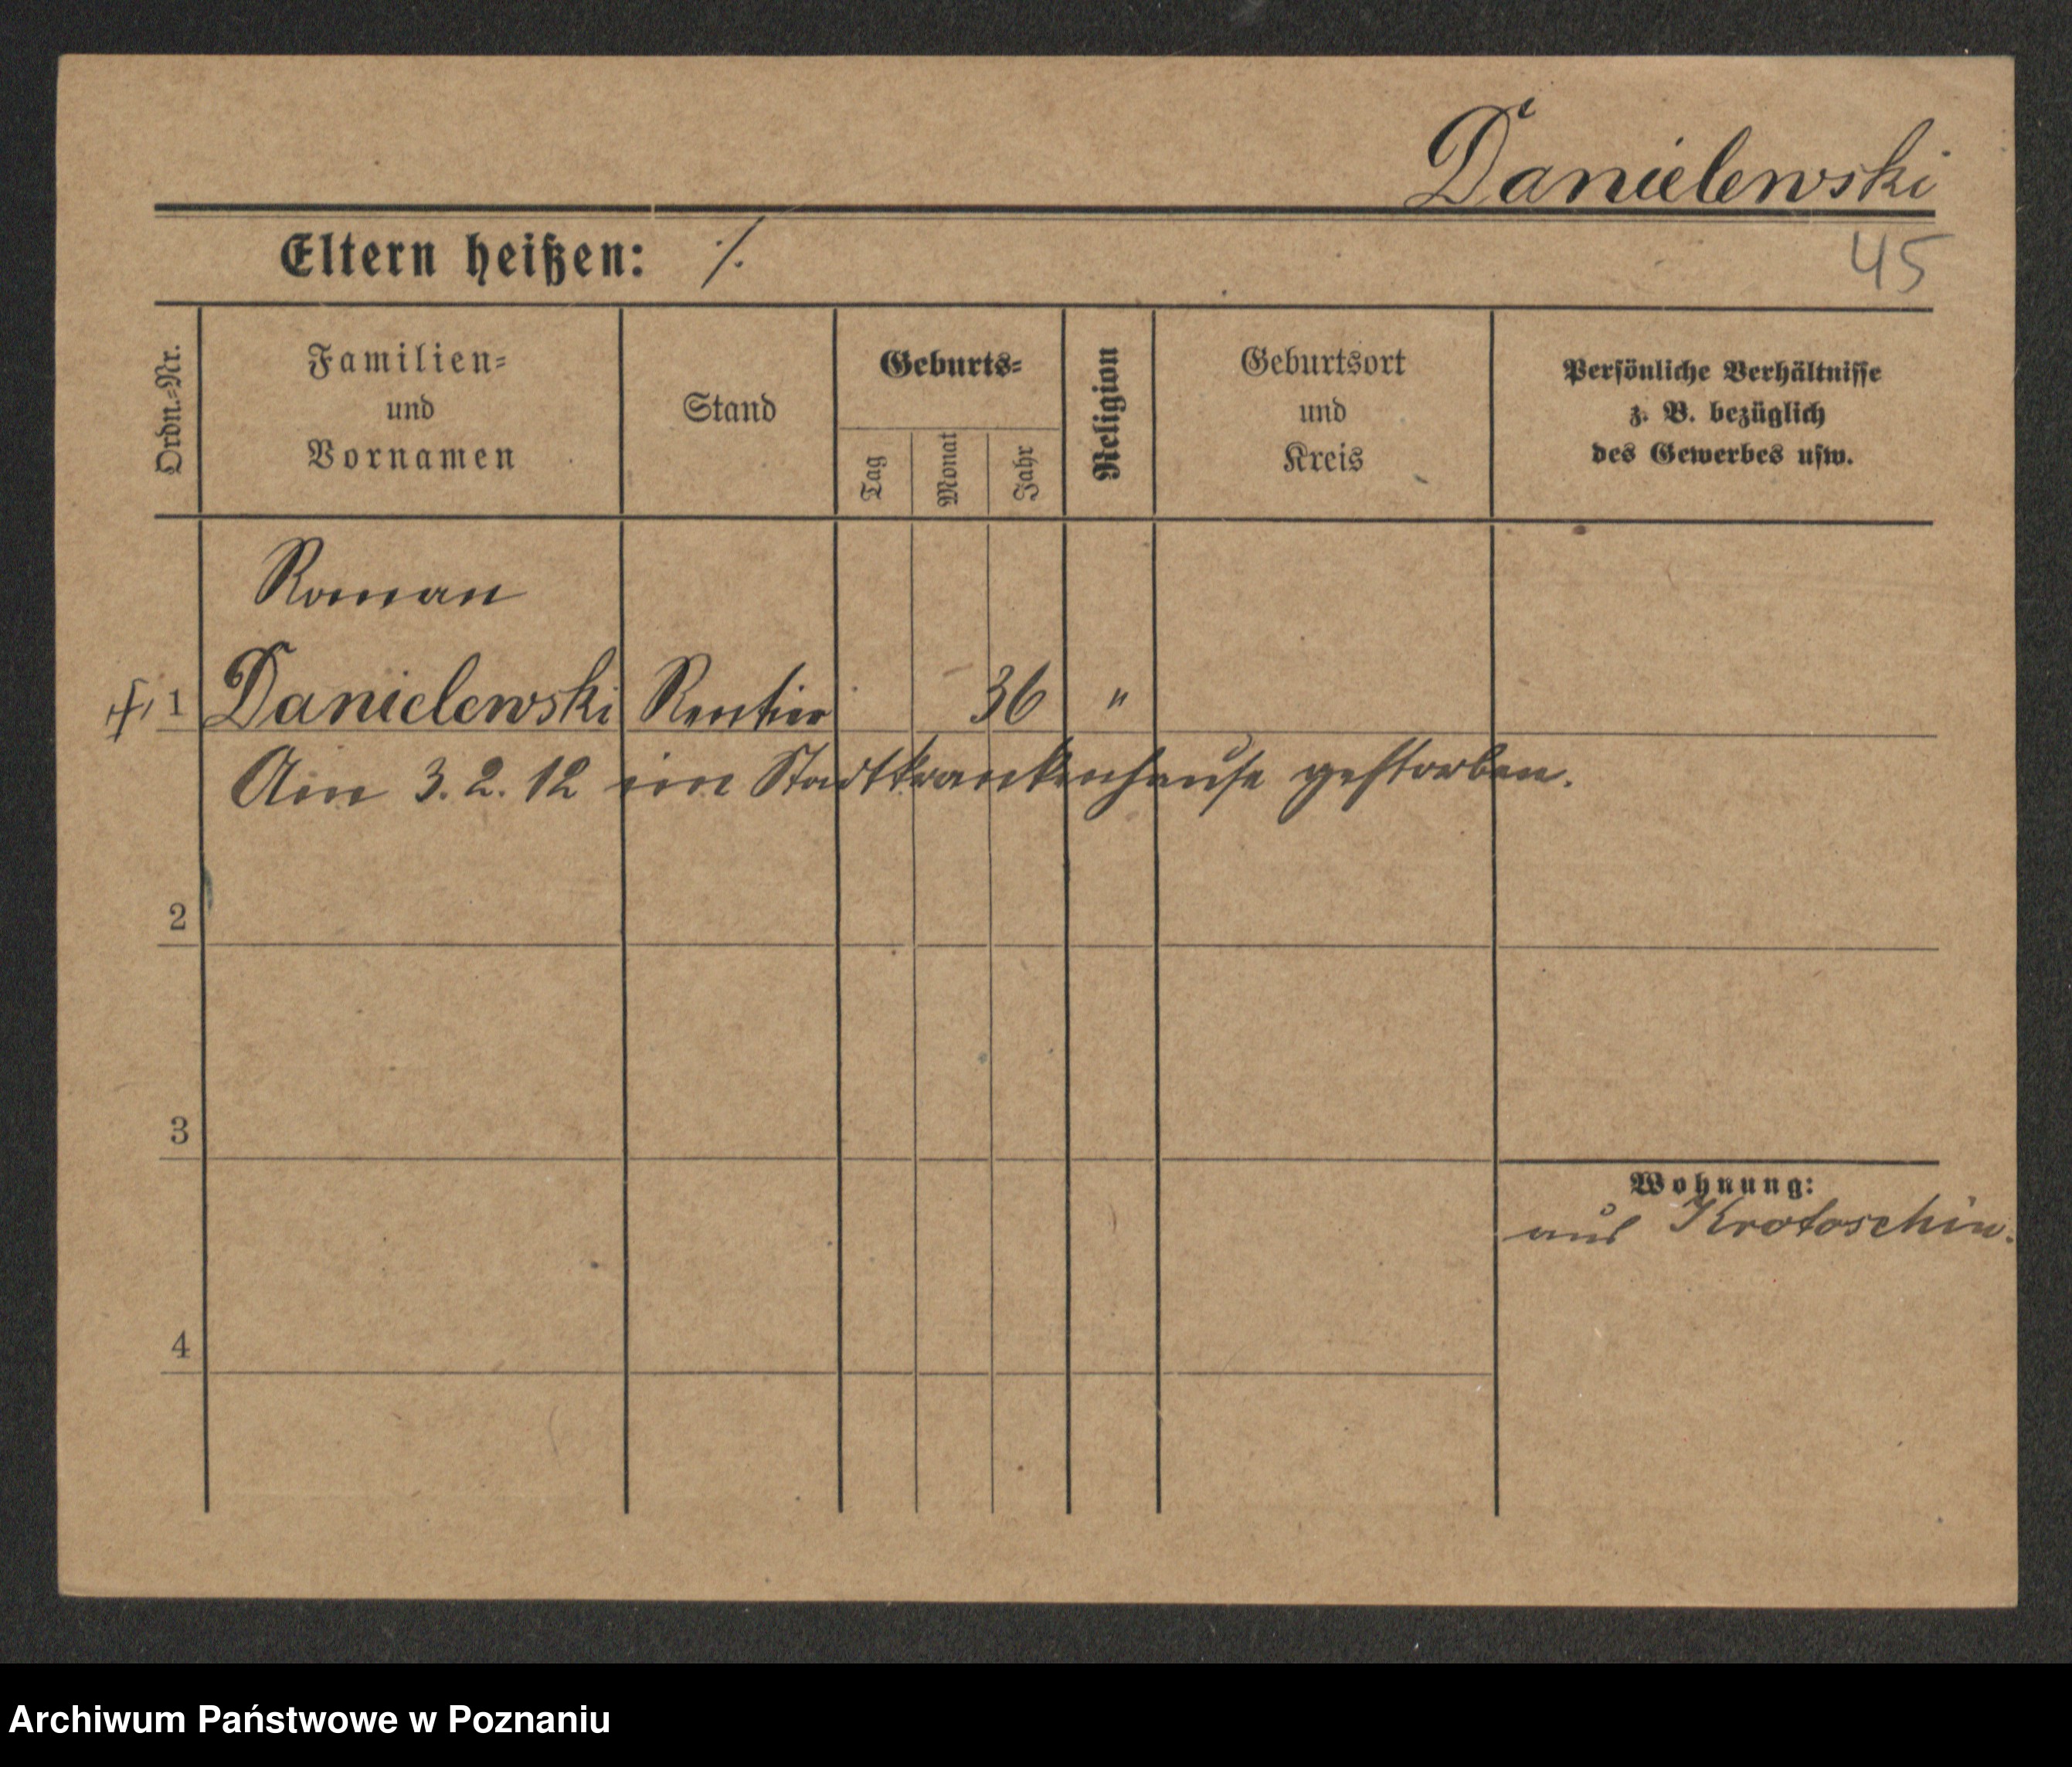 Danielewski
Eltern heißen: ./.
45
Ordn.-Nr.
Familien-
und
Vornamen
Stand
Geburts-
Tag
Monat
Jahr
Religion
Geburtsort
und
Kreis
Persönliche Verhältnisse
z. B. bezüglich
des Gewerbes usw.
Roman
1 Danielewski Rentier 36 "
Am 3.2.12 im Stadtkrankenhause gestorben.
2
3
Wohnung:
aus Krotoschin.
4
Archiwum Państwowe w Poznaniu